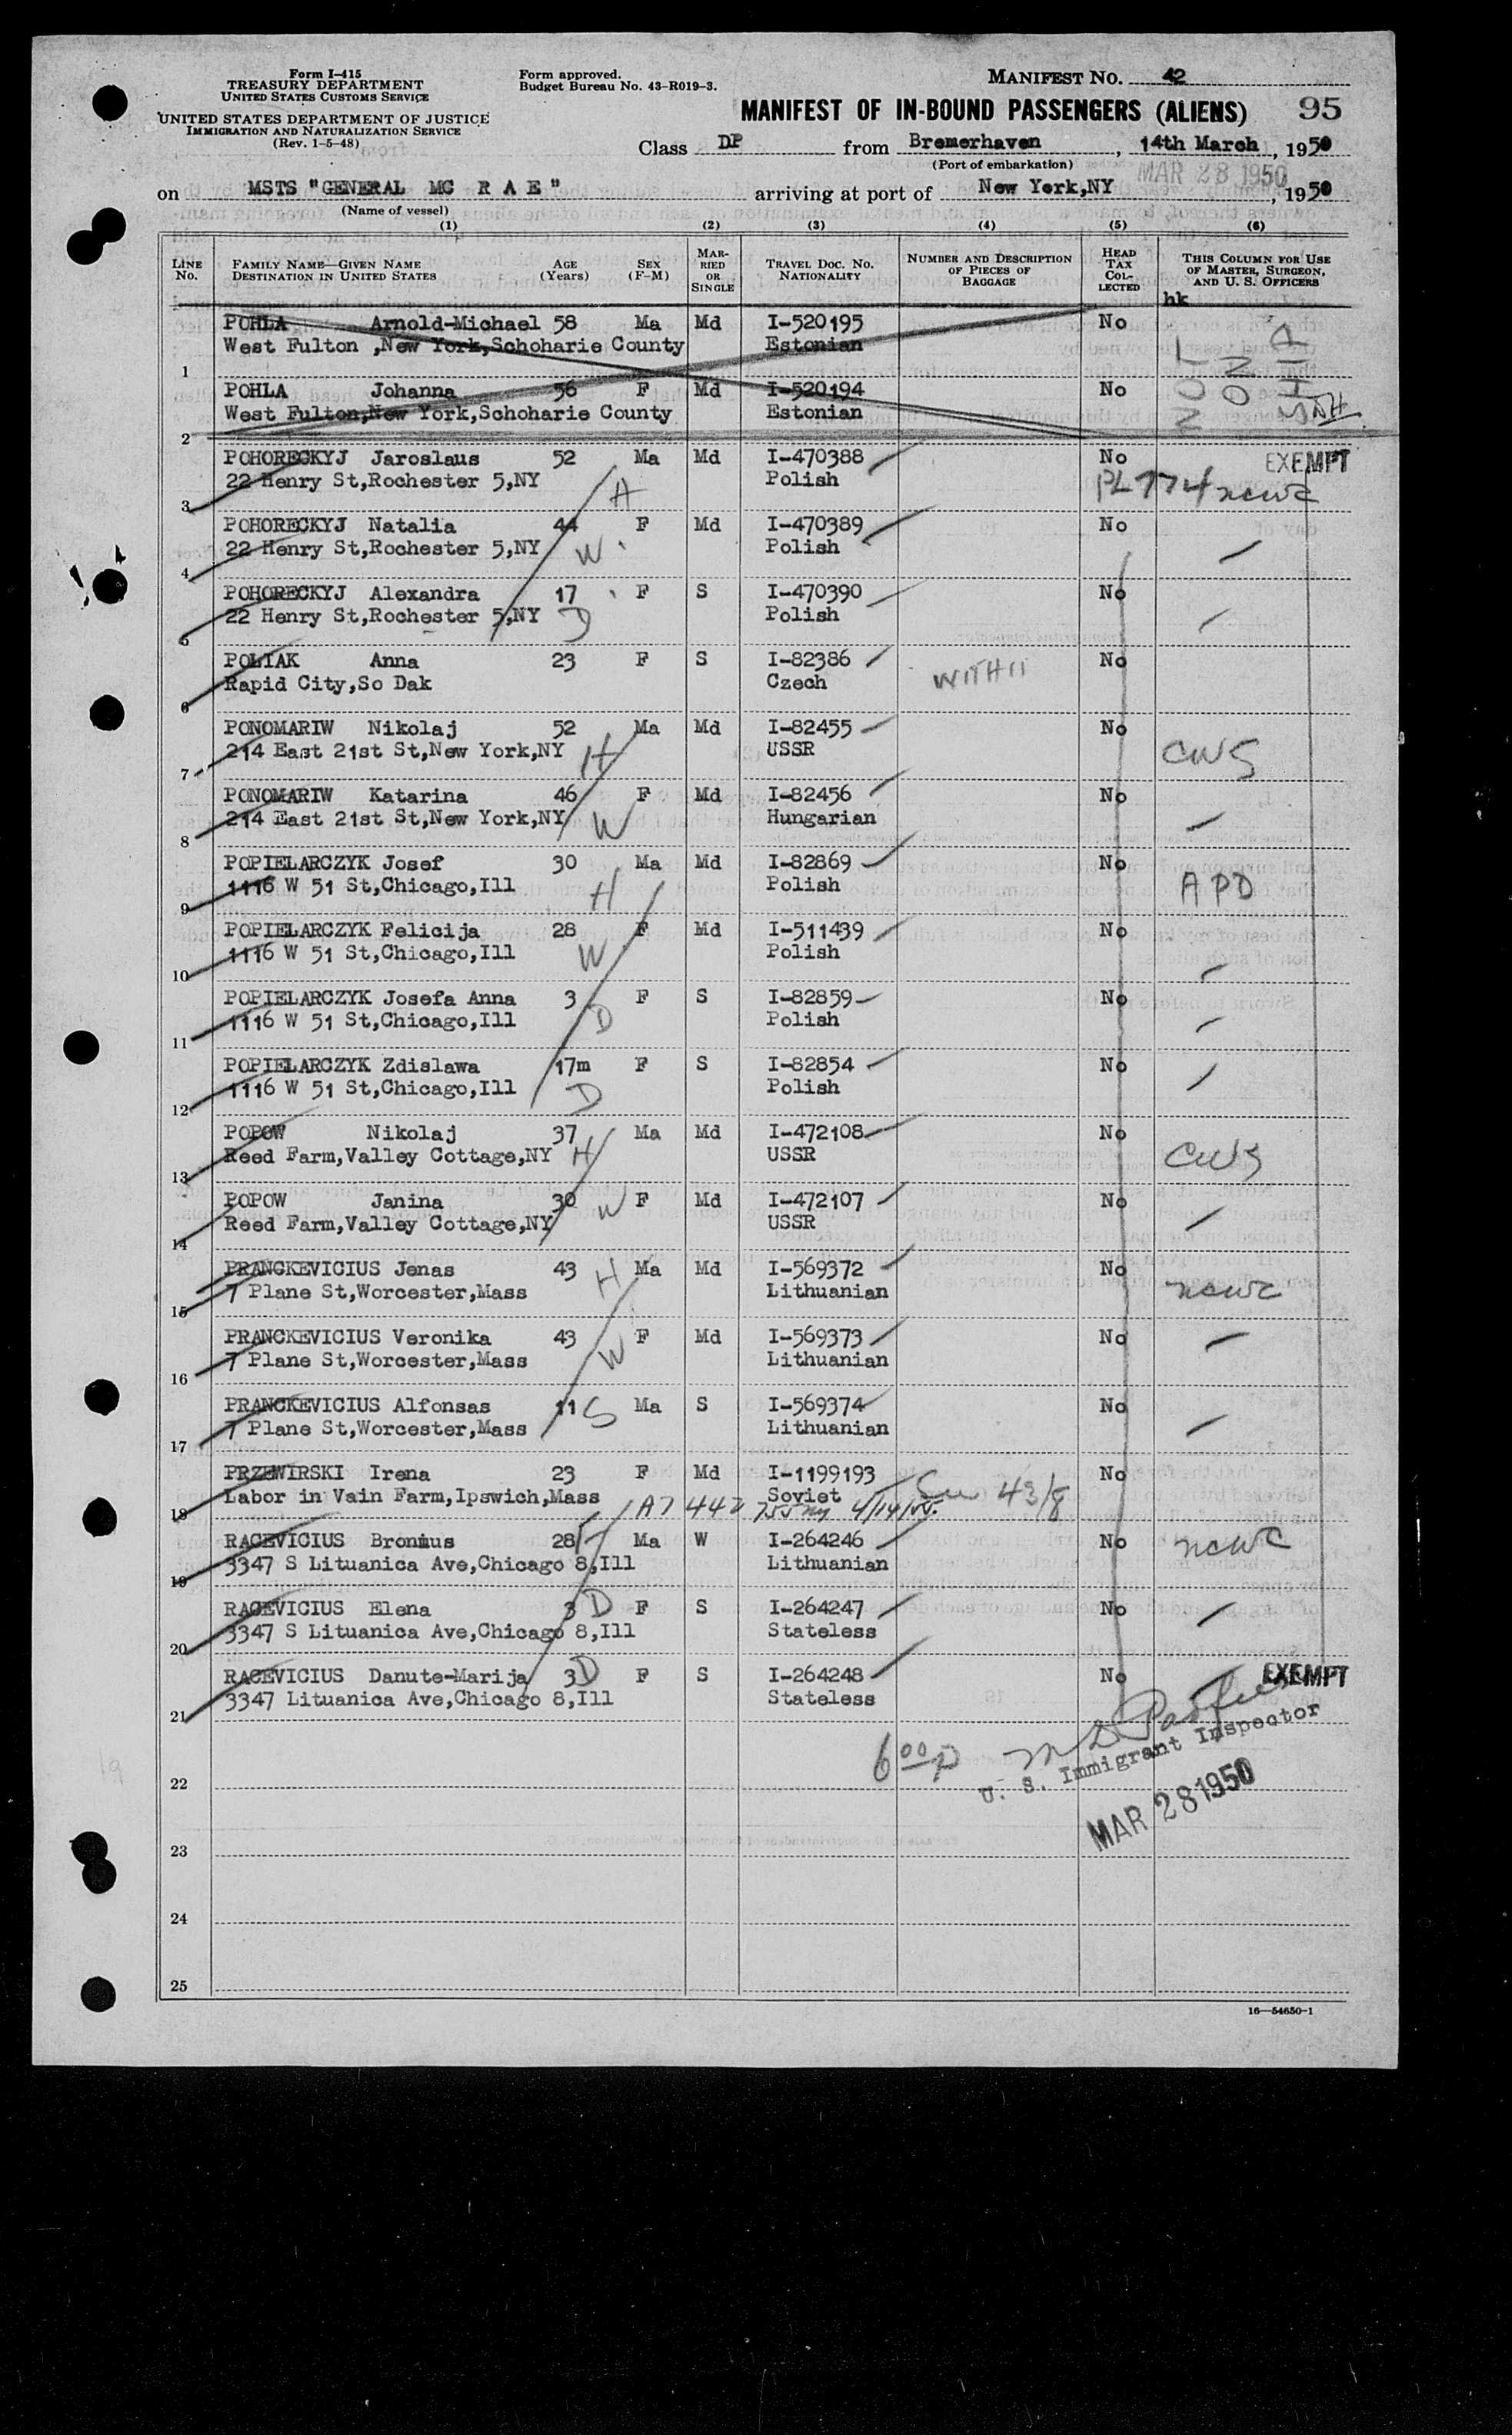 Form I-415
TREASURY DEPARTMENT
UNITED STATES CUSTOMS SERVICE
UNITED STATES DEPARTMENT OF JUSTICE
IMMIGRATION AND NATURALIZATION SERVICE
(Rev. 1-5-48)
Form approved.
Budget Bureau No. 43-R019-3.
MANIFEST NO. 42
MANIFEST OF IN-BOUND PASSENGERS (ALIENS) 95
Class DP from Bremerhaven, 14th March, 1950
(Port of embarkation)
MAR 28 1950
on MSTS "GENERAL MC R A E" arriving at port of New York,NY, 1950
(Name of vessel)
(1) (2) (3) (4) (5) (6)
LINE No. FAMILY NAME—GIVEN NAME DESTINATION IN UNITED STATES AGE (Years) SEX (F-M) MARRIED OR SINGLE TRAVEL DOC. NO. NATIONALITY NUMBER AND DESCRIPTION OF PIECES OF BAGGAGE HEAD TAX COLLECTED THIS COLUMN FOR USE OF MASTER, SURGEON, AND U. S. OFFICERS
hk
POHLA Arnold-Michael 58 Ma Md I-520195 No
West Fulton ,New York,Schoharie County Estonian
1
NOT ON SHIP
POHLA Johanna 56 F Md I-520194 No
West Fulton,New York,Schoharie County Estonian
2
POHORECKYJ Jaroslaus 52 Ma Md I-470388 No EXEMPT
22 Henry St,Rochester 5,NY Polish PL 774 ncwc
3 H
POHORECKYJ Natalia 44 F Md I-470389 No
22 Henry St,Rochester 5,NY W Polish
4
POHORECKYJ Alexandra 17 F S I-470390 No
22 Henry St,Rochester 5,NY D Polish
5
POLIAK Anna 23 F S I-82386 No
Rapid City,So Dak Czech WITH 11
6
PONOMARIW Nikolaj 52 Ma Md I-82455 No
214 East 21st St,New York,NY H USSR CWS
7
PONOMARIW Katarina 46 F Md I-82456 No
214 East 21st St,New York,NY W Hungarian
8
POPIELARCZYK Josef 30 Ma Md I-82869 No
1116 W 51 St,Chicago,Ill H Polish APD
9
POPIELARCZYK Felicija 28 F Md I-511439 No
1116 W 51 St,Chicago,Ill W Polish
10
POPIELARCZYK Josefa Anna 3 F S I-82859 No
1116 W 51 St,Chicago,Ill D Polish
11
POPIELARCZYK Zdislawa 17m F S I-82854 No
1116 W 51 St,Chicago,Ill D Polish
12
POPOW Nikolaj 37 Ma Md I-472108 No
Reed Farm,Valley Cottage,NY H USSR CWS
13
POPOW Janina 30 W F Md I-472107 No
Reed Farm,Valley Cottage,NY USSR
14
PRANCKEVICIUS Jenas 43 H Ma Md I-569372 No
7 Plane St,Worcester,Mass Lithuanian ncwc
15
PRANCKEVICIUS Veronika 43 F Md I-569373 No
7 Plane St,Worcester,Mass W Lithuanian
16
PRANCKEVICIUS Alfonsas 11 S Ma S I-569374 No
7 Plane St,Worcester,Mass Lithuanian
17
PRZEWIRSKI Irena 23 F Md I-1199193 No
Labor in Vain Farm,Ipswich,Mass Soviet 43/8
18 A7 442 755 4/14/55
RACEVICIUS Bronius 28 F Ma W I-264246 No ncwc
3347 S Lituanica Ave,Chicago 8,Ill Lithuanian
19
RACEVICIUS Elena 3 D F S I-264247 No
3347 S Lituanica Ave,Chicago 8,Ill Stateless
20
RACEVICIUS Danute-Marija 3 D F S I-264248 No EXEMPT
3347 Lituanica Ave,Chicago 8,Ill Stateless
21
6 00 P
U. S. Immigrant Inspector
22
MAR 28 1950
23
24
25
16—54650-1